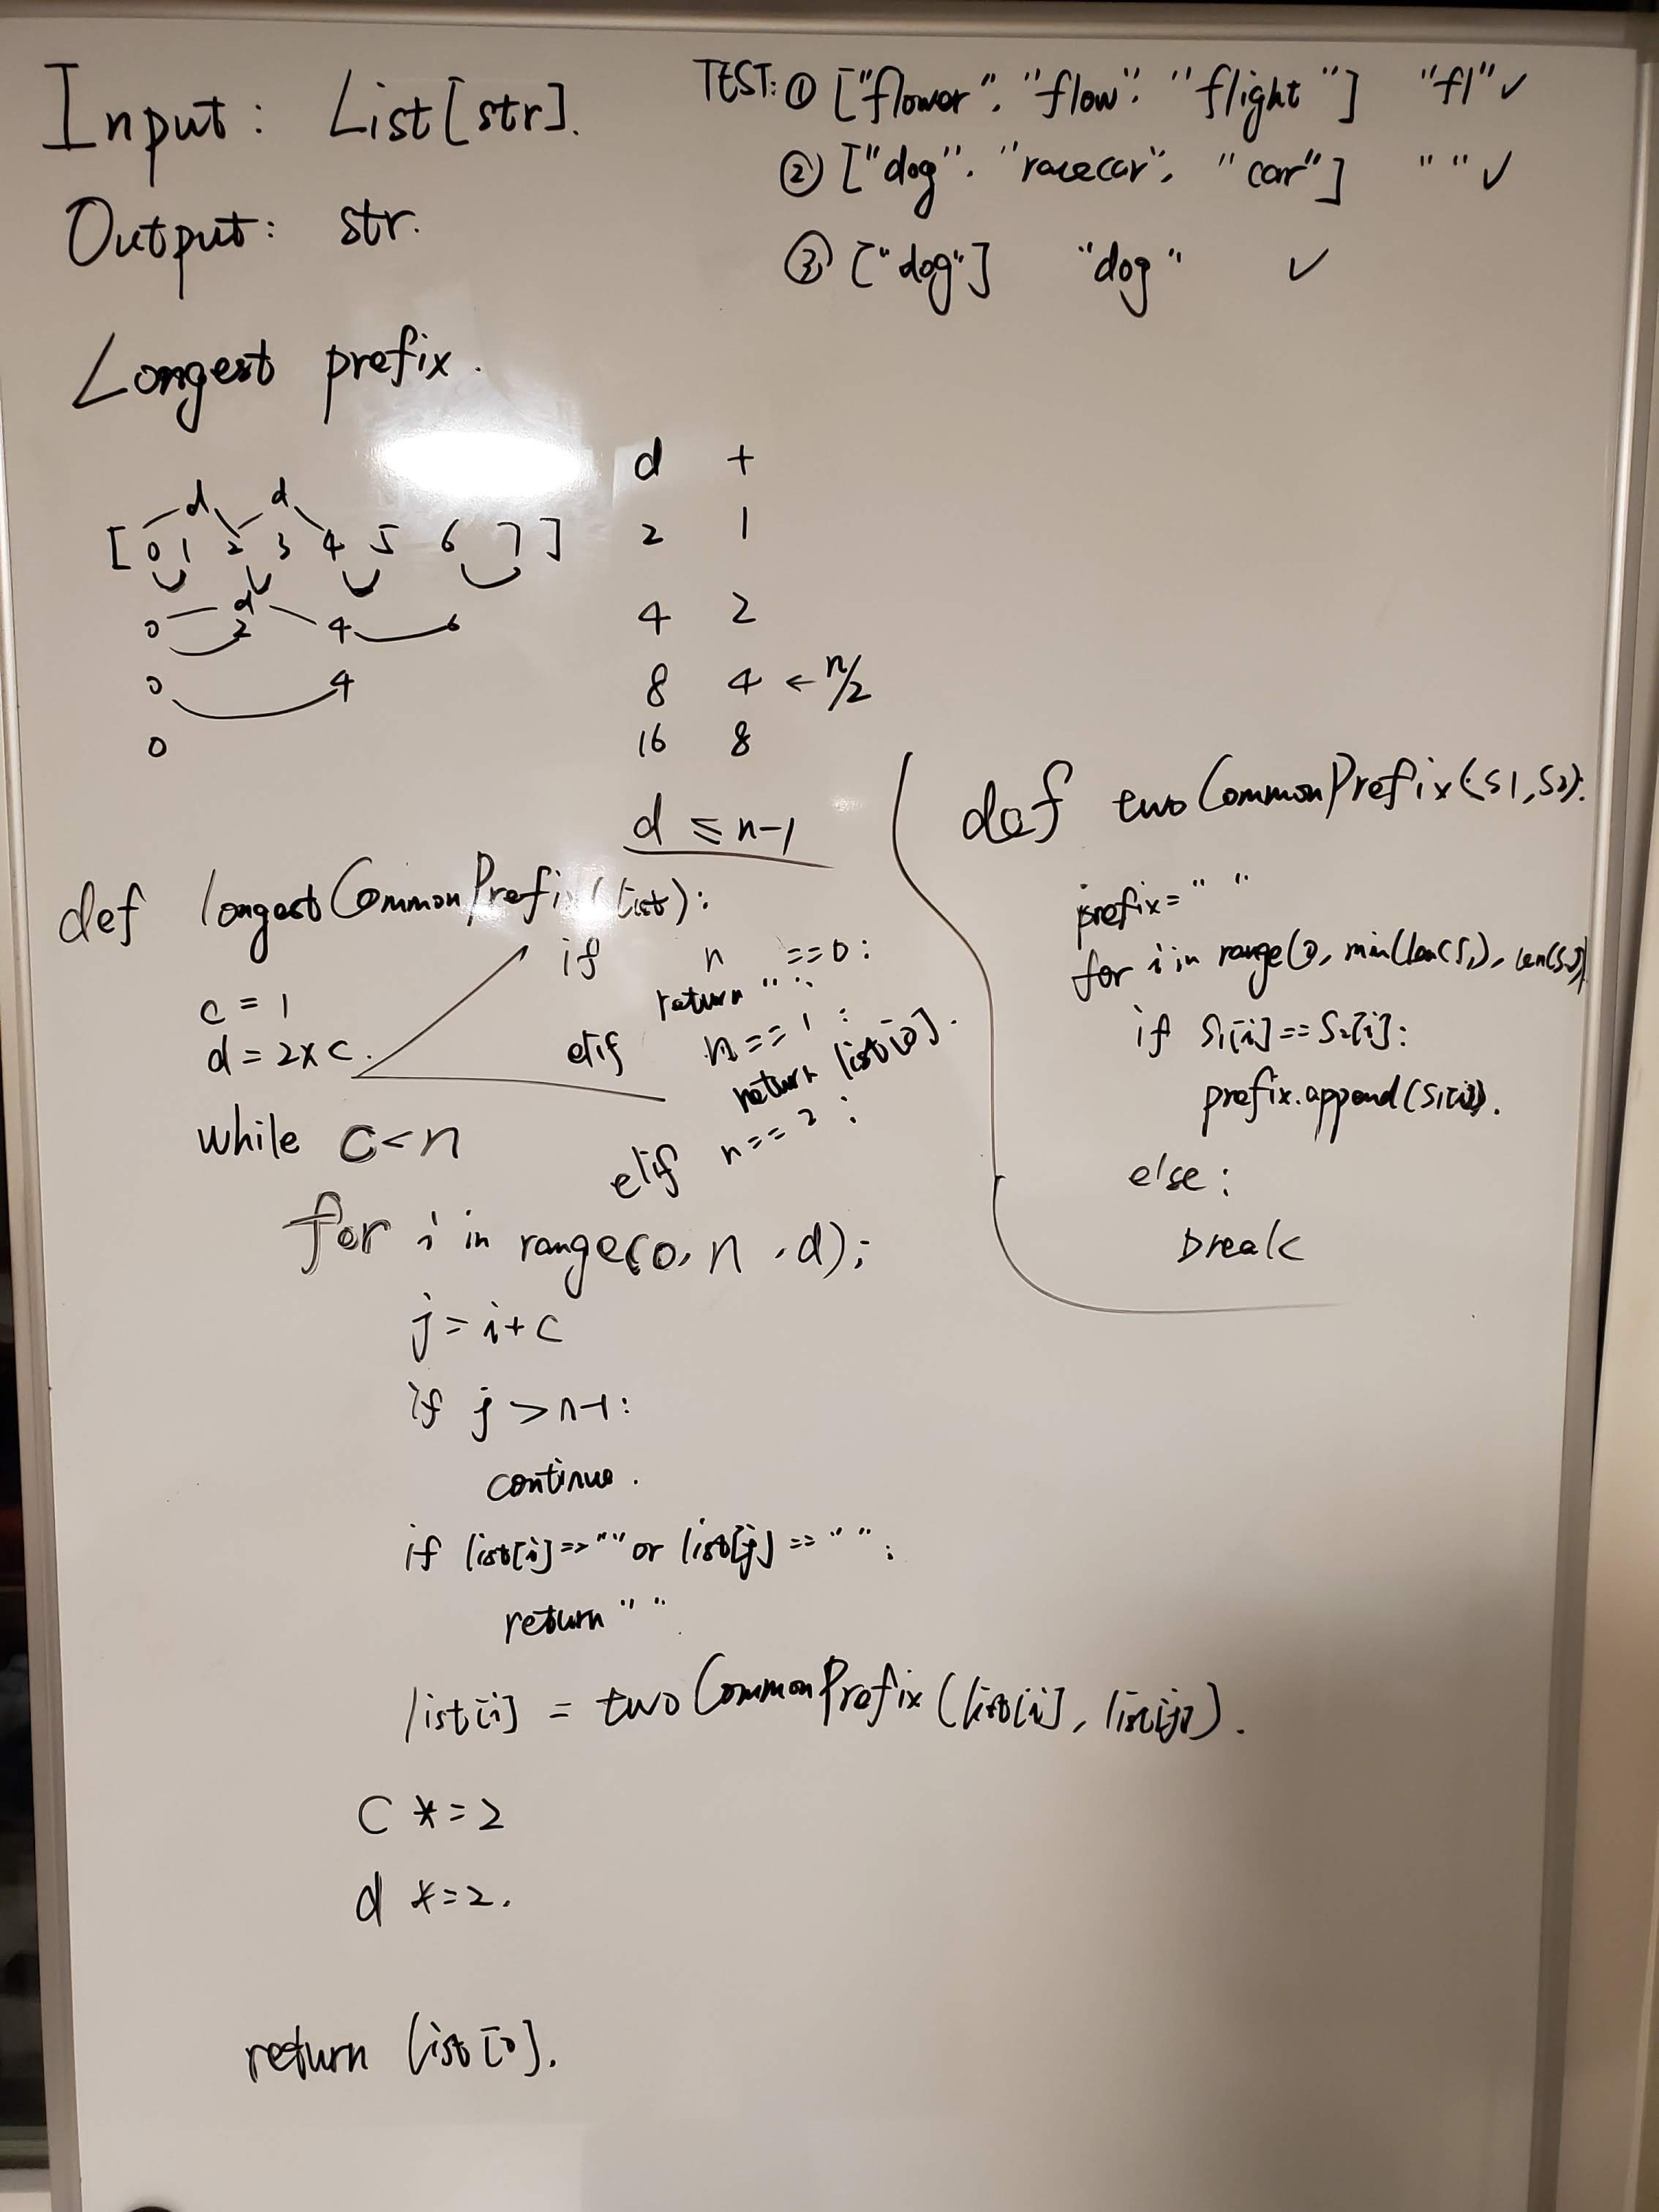 Input: List[str].
Output: str.
TEST: ① ["flower", "flow", "flight"] "fl" ✓
② ["dog", "racecar", "car"] "" ✓
③ ["dog"] "dog" ✓
Longest prefix.
d d
[0 1 2 3 4 5 6 7]
d
0 2 4 6
0 4
0
d +
2 1
4 2
8 4 ← n/2
16 8
d ≤ n-1
def longestCommonPrefix(list):
if n ==0:
return "";
elif n==1:
return list[0].
elif n==2:
c = 1
d = 2×c.
while c<n
for i in range(0, n, d);
j = i+c
if j >n-1:
continue.
if list[i]=="" or list[j] == "":
return ""
list[i] = twoCommonPrefix(list[i], list[j]).
c *=2
d *=2.
return list[0].
def twoCommonPrefix(s1,s2):
prefix= ""
for i in range(0, min(len(s1), len(s2)
if s1[i]==s2[i]:
prefix.append(s1[i]).
else:
break